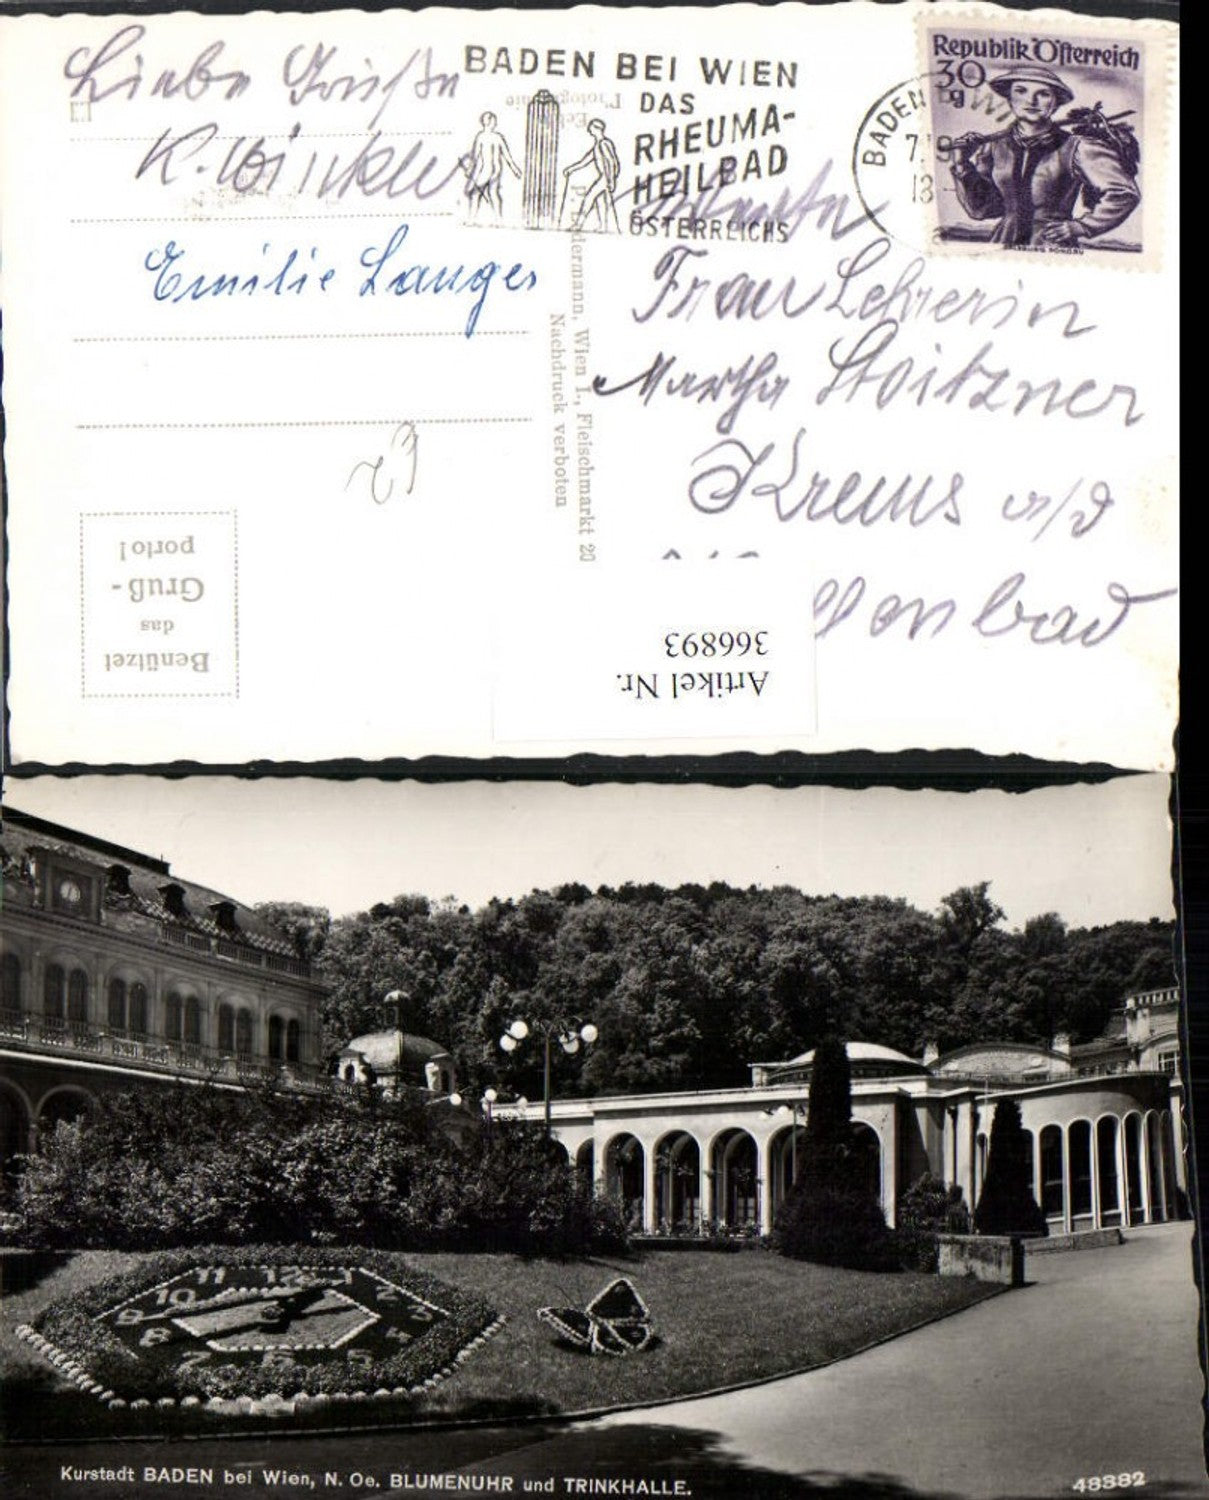 Liebe Grüße
K. Winkler
Emilie Langer
BADEN BEI WIEN
DAS
RHEUMA-
HEILBAD
ÖSTERREICHS
BADEN
Republik Österreich
30
g
Frau Lehrerin
Martha Stoitzner
Krems a/d
Artikel Nr.
366893
P. Ledermann, Wien I., Fleischmarkt 20
Nachdruck verboten
Echte
Photographie
Benützet
das
Gruß-
porto!
11 12 1
10 2
9 3
8 4
7 6 5
Kurstadt BADEN bei Wien, N. Oe. BLUMENUHR und TRINKHALLE.
48382